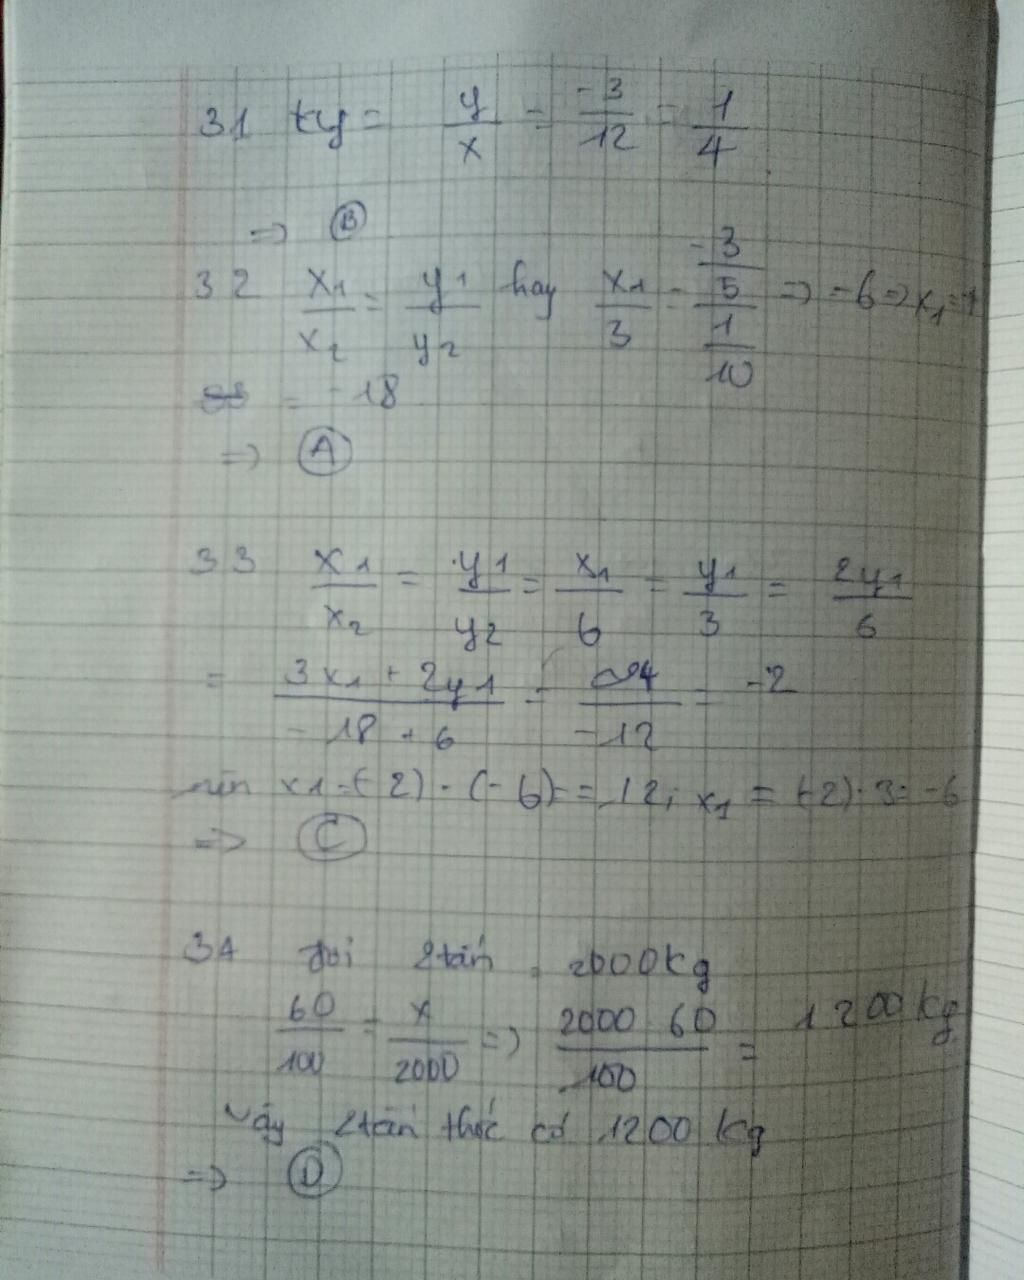 31 ky = y/x = -3/12 = 1/4
=> B
32 x1/x2 = y1/y2 hay x1/3 = -3/5 / 1/10 => -6 => x1 =
= -18
=> A
33 x1/x2 = y1/y2 = x1/6 = y1/3 = 2y1/6
= 3x1 + 2y1 / -18 + 6 = 24/-12 = -2
nên x1 = (-2) . (-6) = 12; x1 = (-2) . 3 = -6
=> C
34 đổi 2tấn = 2000kg
60/100 = x/2000 => 2000 60/100 = 1200 kg
Vậy 2tấn thóc có 1200 kg
=> D